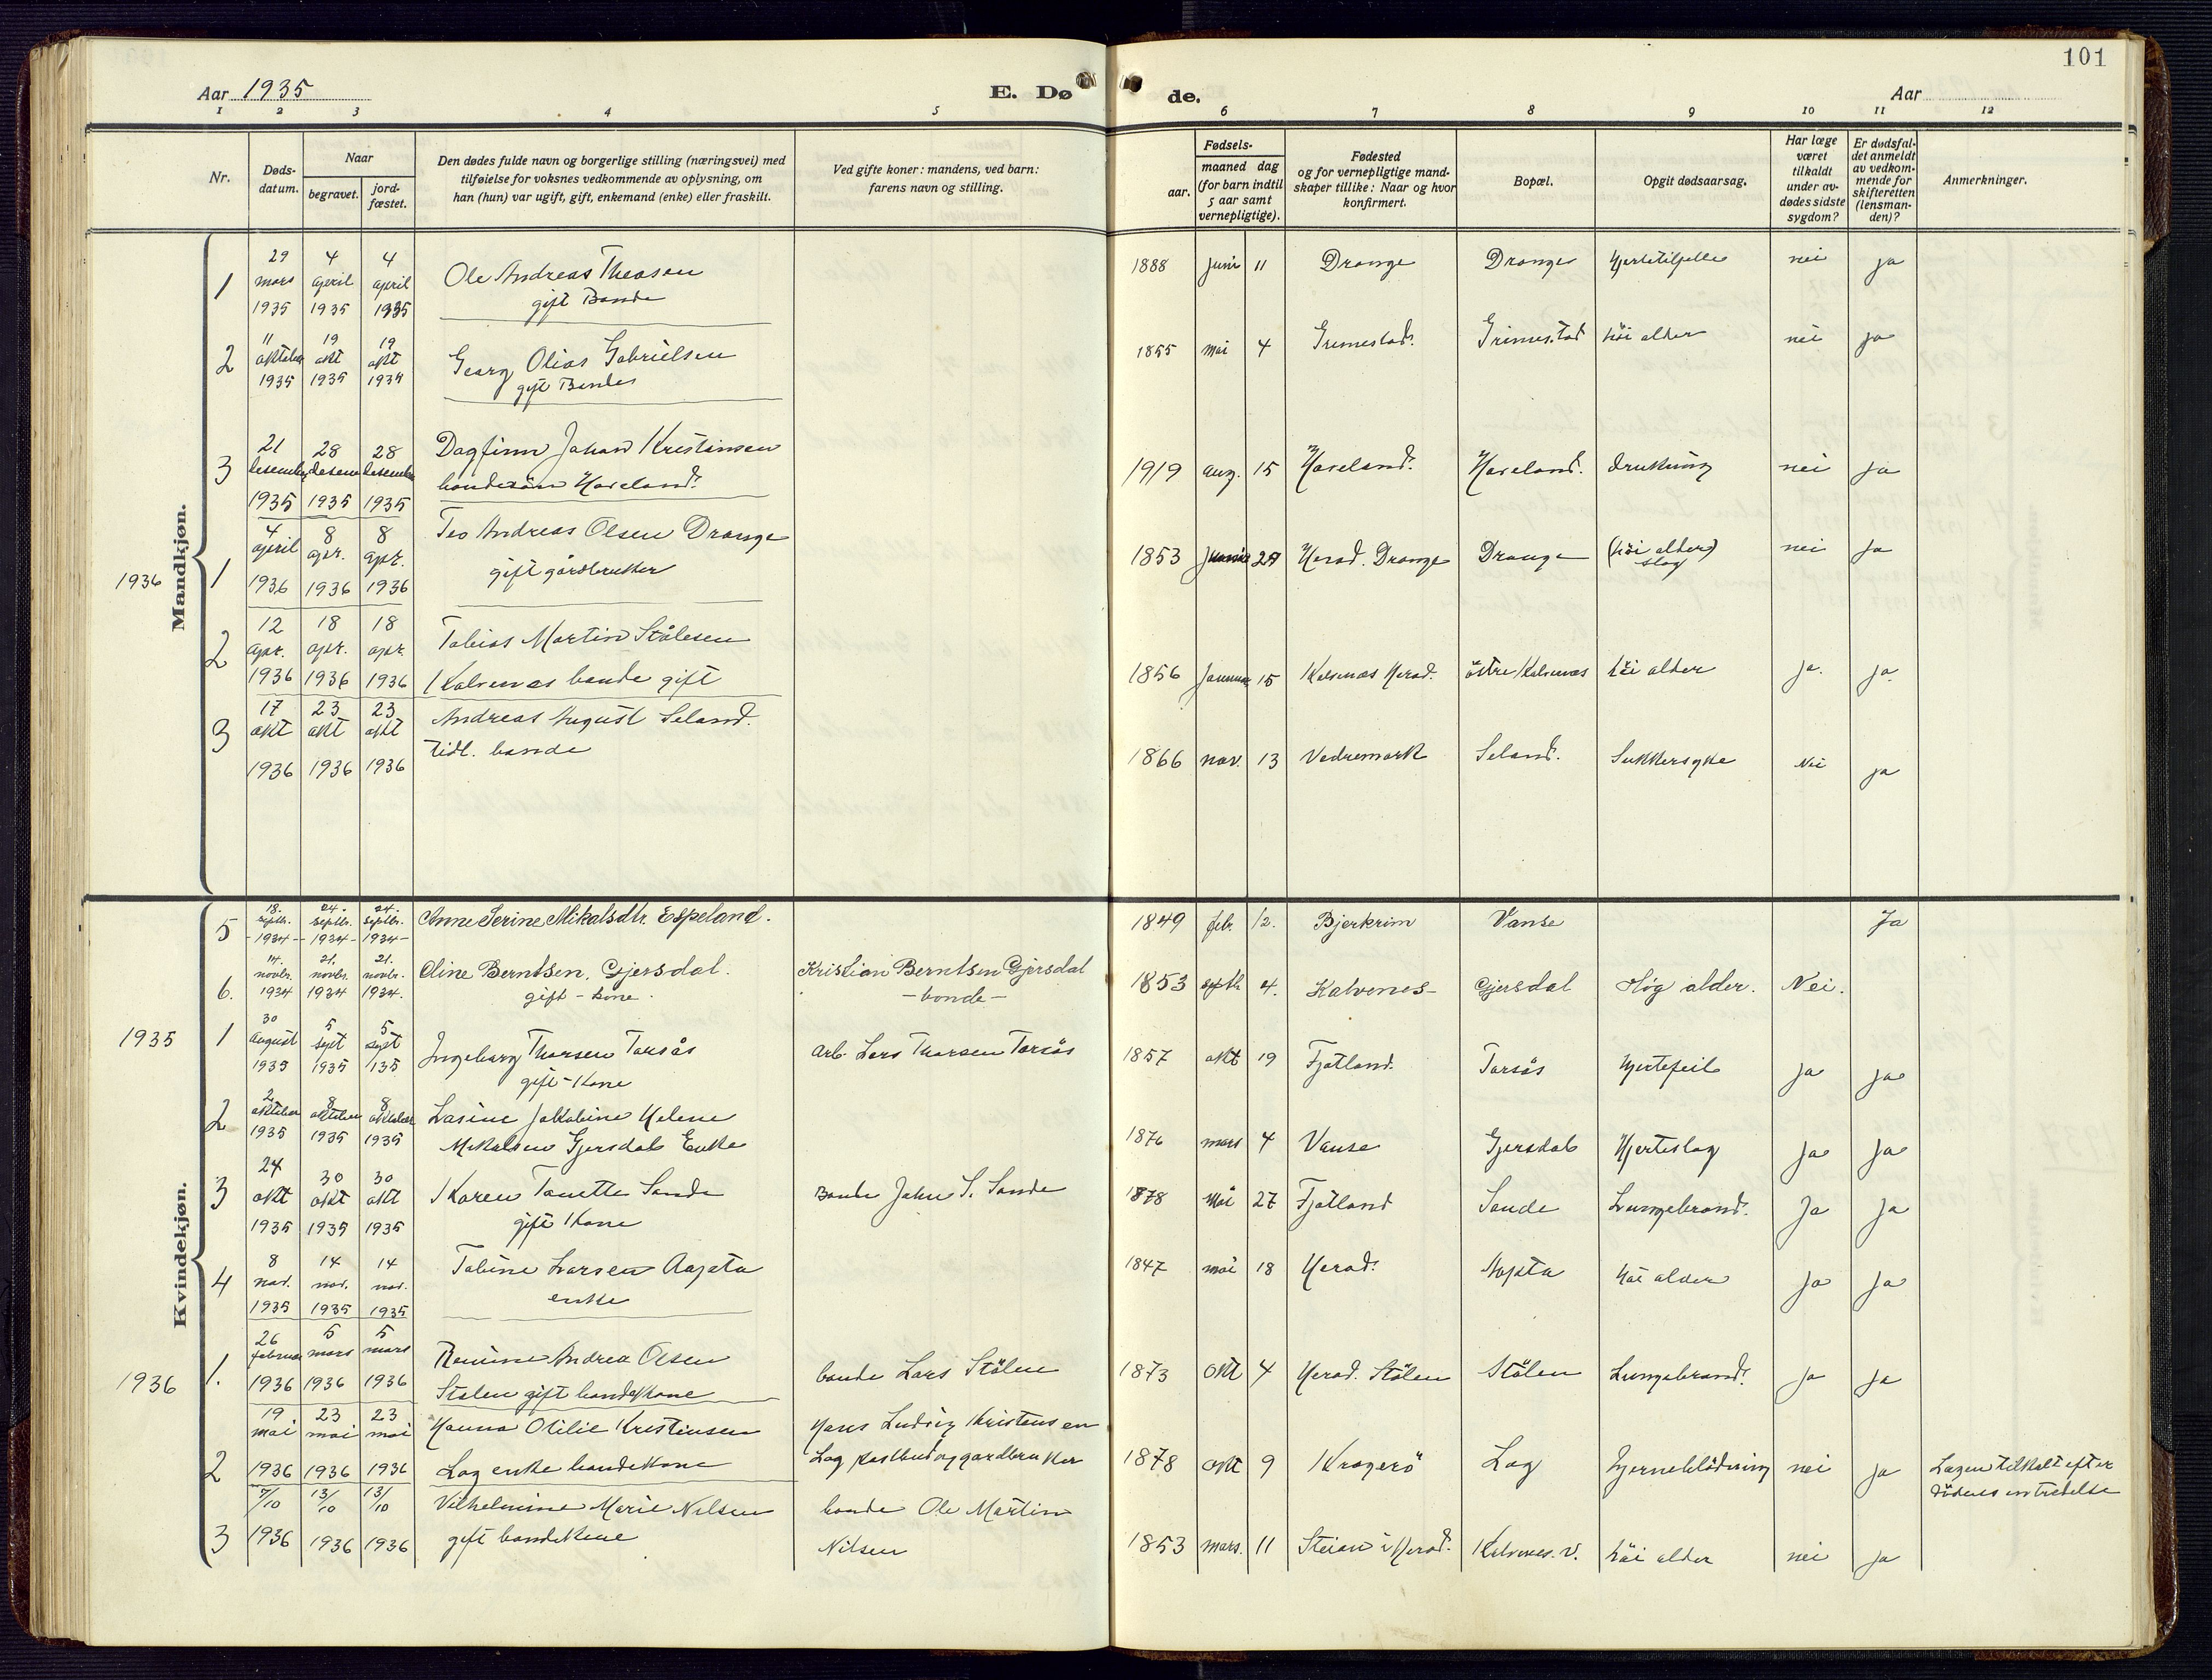 101
Aar 1935
E. Dø de.
Aar
1 2 3 4 5 6 7 8 9 10 11 12
Nr.
Døds-
datum.
Naar
begravet.
jord-
fæstet.
Den dødes fulde navn og borgerlige stilling (næringsvei) med
tilføielse for voksnes vedkommende av oplysning, om
han (hun) var ugift, gift, enkemand (enke) eller fraskilt.
Ved gifte koner: mandens, ved barn:
farens navn og stilling.
Fødsels-
aar.
maaned dag
(for barn indtil
5 aar samt
vernepligtige).
Fødested
og for vernepligtige mand-
skaper tillike: Naar og hvor
konfirmert.
Bopæl.
Opgit dødsaarsag.
Har læge
været
tilkaldt
under av-
dødes sidste
sygdom?
Er dødsfal-
det anmeldt
av vedkom-
mende for
skifteretten
(lensman-
den)?
Anmerkninger.
Mandkjøn.
1 29 mars 1935 4 april 1935 4 april 1935 Ole Andreas Theosen
gift Bonde
1888 juni 11 Drange Drange Hjertetilfelle nei ja
2 11 oktober 1935 19 okt 1935 19 okt 1935 Georg Olias Gabrielsen
gift Bonde
1855 mai 4 Grimestad Grimestad höi alder nei ja
3 21 desember 1935 28 desem 1935 28 desember 1935 Dagfinn Johan Kristiansen
bondesön Haveland
1919 aug. 15 Haveland. Haveland. drukning nei ja
1936
1 4 april 1936 8 apr. 1936 8 apr. 1936 Teo Andreas Olsen Drange
gift gårdbruker
1853 29 Herad. Drange Drange (höi alder)
slag nei ja
2 12 apr. 1936 18 apr. 1936 18 apr. 1936 Tobias Martin Stålesen
Kalvenas bonde gift
1856 Januar 15 Kalvenas Herad. östre Kalvenas höi alder ja. ja.
3 17 okt 1936 23 okt 1936 23 okt 1936 Andreas August Seland.
tidl. bonde
1866 nov. 13 Vedremork Seland. Sukkersyke Nei ja
Kvindekjøn.
5 18. septbr. -1934- 24. septbr. -1934- 24. septbr. -1934- Anne Serine Mikalsdtr. Espeland.
1849 feb. 12. Bjerkrim Vanse Ja
6. 14. novbr. 1934 21. novbr. 1934 21. novbr. 1934. Oline Berntsen, Gjersdal.
gift - kone.
Kristian Berntsen Gjersdal
- bonde -
1853 septb 4. Kalvenes- Gjersdal Høg alder. Nei.
1935
1 30 august 1935 5 sept 1935 5 sept 135 Ingeborg Thorsen Torsås
gift - Kone
Arb. Lars Thorsen Torsås
1857 okt 19 Fjotland. Torsås Hjertefeil ja ja
2 2 oktober 1935 8 oktober 1935 8 oktober 1935 Lasine Jakobine Helene
Mikalsen Gjersdal Enke
1876 mars 4 Vanse Gjersdal Hjerteslag ja ja
3 24 okt 1935 30 okt 1935 30 okt 1935 Karen Tonette Sande
gift Kone
Bonde John S. Sande
1878 Mai 27 Fjotland Sande Lungebrand. Ja ja
4 8 nov. 1935 14 nov. 1935 14 nov. 1935 Tobine Larsen Aapta
enke
1847 mai 18 Herad. Aapta höi alder Ja Ja
1936
1. 26 februar 1936 5 mars 1936 5 mars 1936 Andrea Olsen
Stolen gift bondekone
bonde Lars Stölen
1873 Okt 4 Herad. Stölen Stölen Lungebrand. ja ja
2 19 mai 1936 23 mai 1936 23 mai 1936 Hanna Otilie Kristensen
Log enke bondekone
Hans Ludvig Kristensen
Log postbud og gardbruker
1878 Okt 9 Kragerö Log hjerneblödning nei ja Lægen tilkalt efter
dödens intredelse
3 7/10 1936 13/10 1936 13/10 1936 Vilhelmine Marie Nilsen
gift bondekone
bonde Ole Martin
Nilsen
1853 mars. 11 i Herad. Kalvenes. V. höi alder nei ja